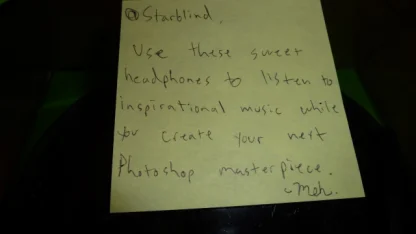 @Starblind,
Use these sweet
headphones to listen to
inspirational music while
you create your next
Photoshop masterpiece.
-Meh.